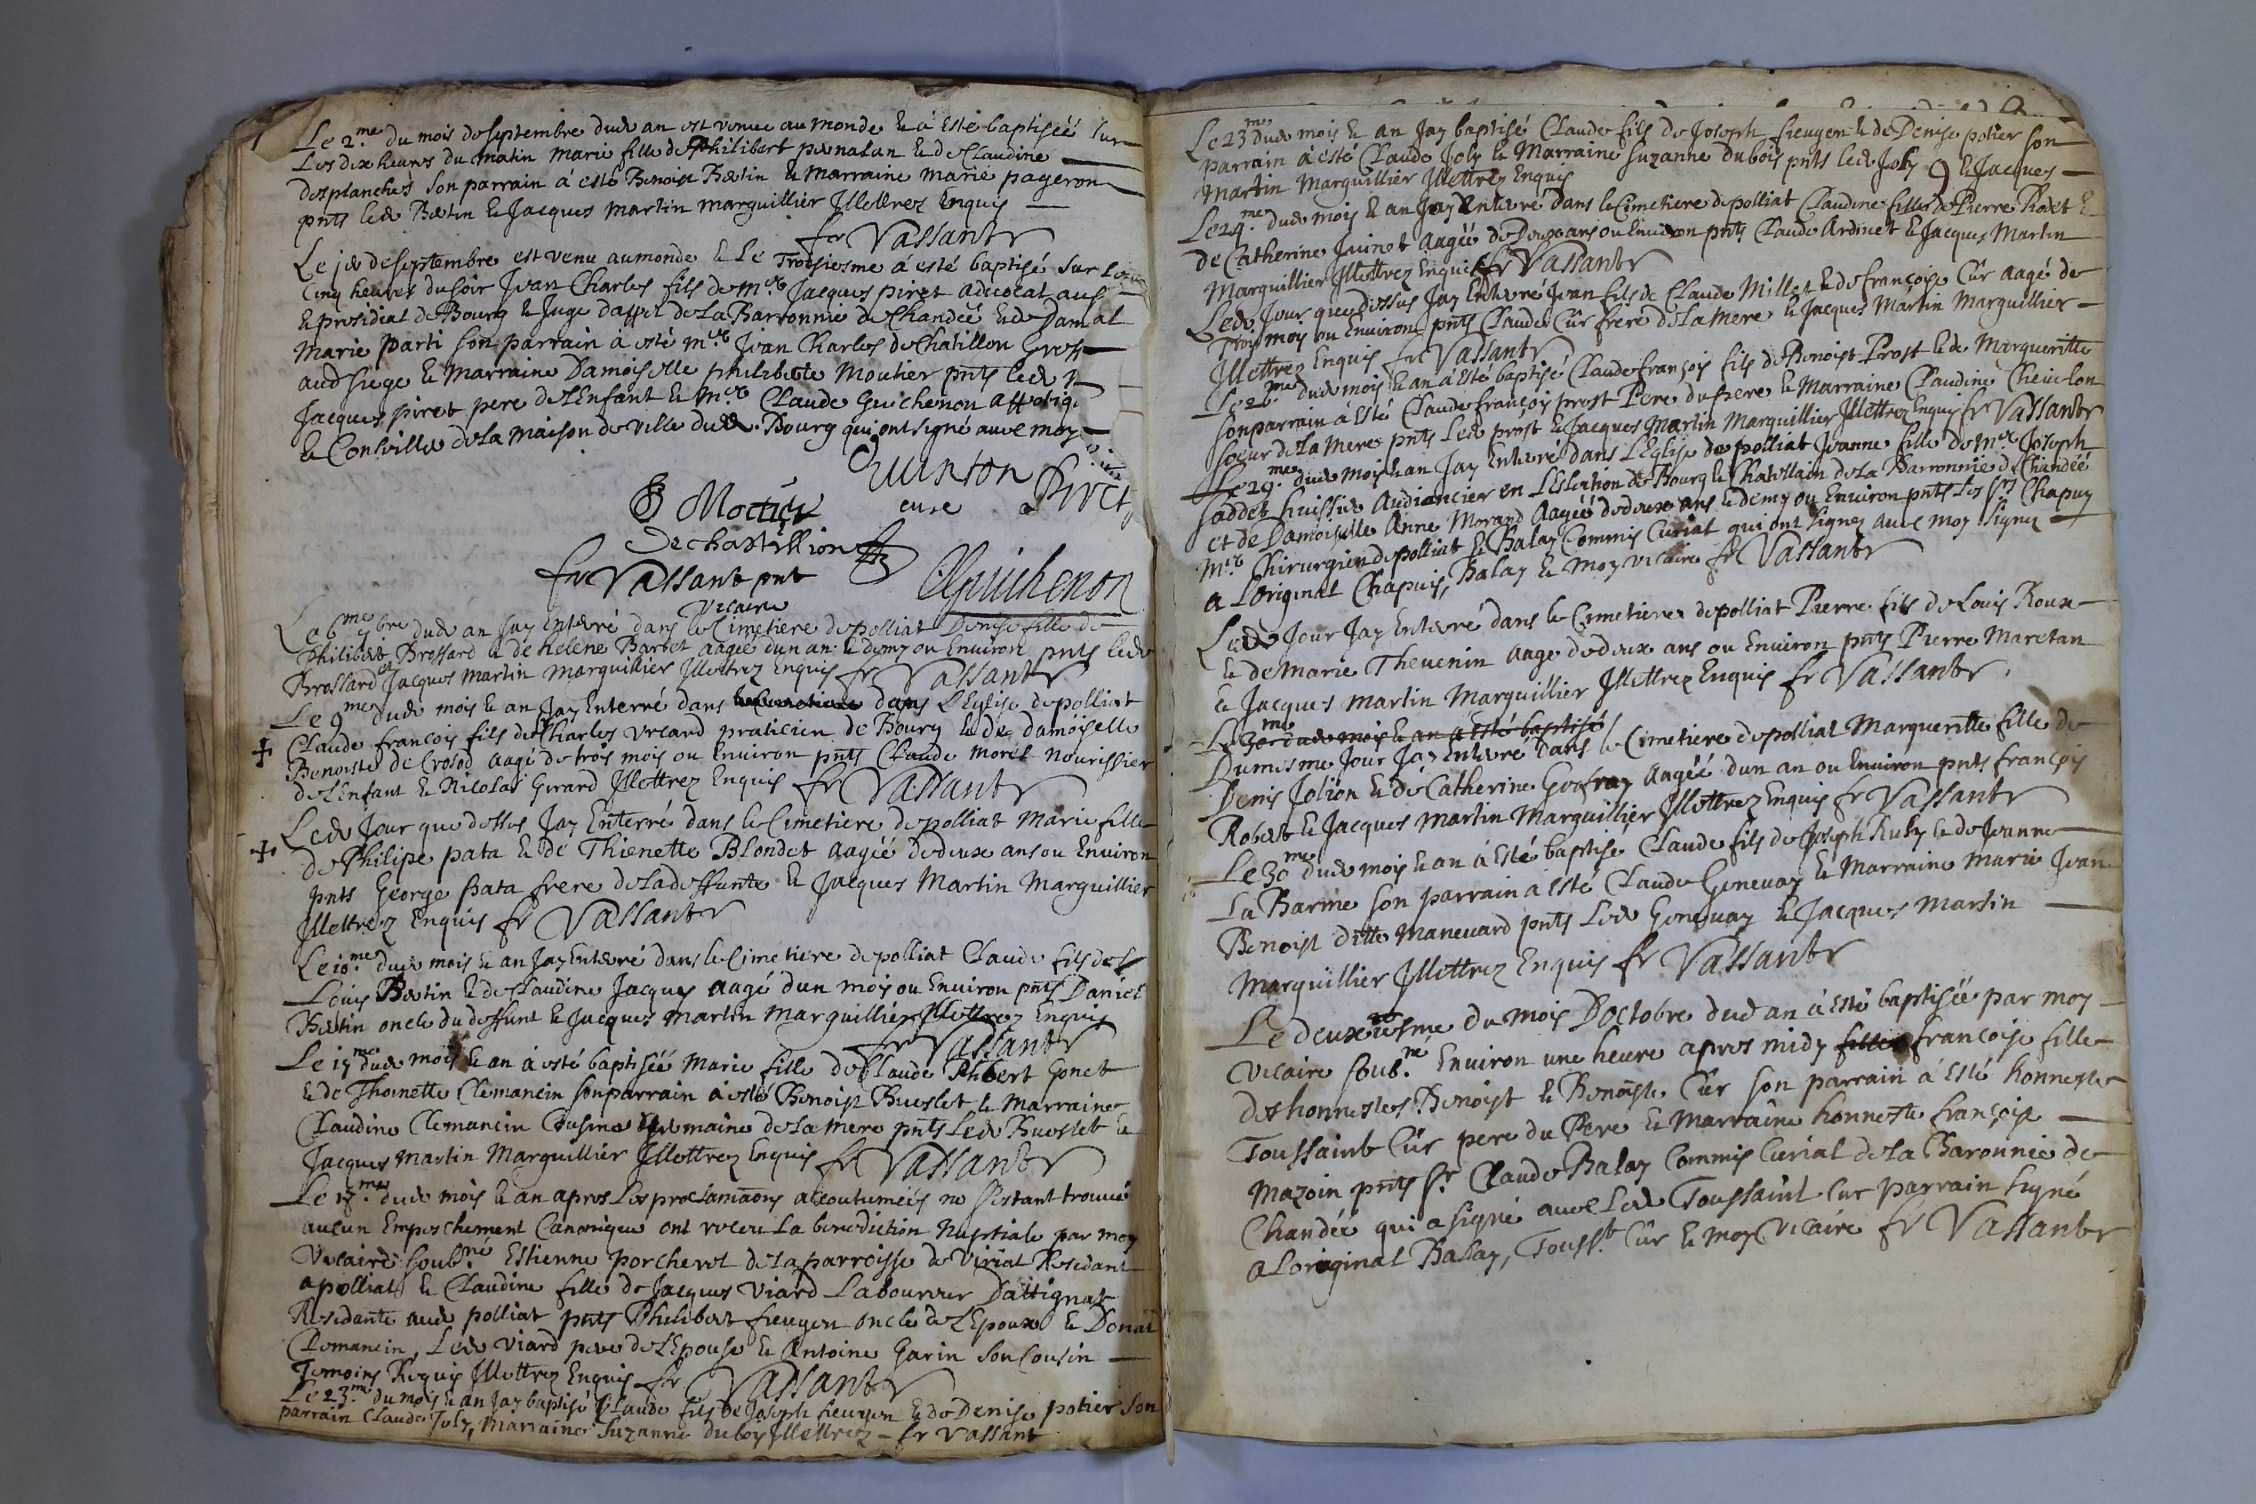 Le 2.me du mois de septembre dud an est venue au monde & a esté baptiséé sur
Les dix heures du matin marie fille de philibert penalan & de Claudine
desplanches son parrain à esté Benoist Bertin & marraine marie pageron
pnts led Bertin & Jacques martin marguillier Illettrez Enquis
fr Vassant
Le jer de septembre est venu au monde & Le Troisiesme à esté baptisé sur Les
cinq heures du soir Jean Charles fils de me Jacques piret advocat au
& presidial de Bourg & Juge dappel de La Barronnie de Chandéé & de Dam.
Marie parti son parrain a esté me Jean Charles de Chatillon
aud siege & Marraine Damoiselle philiberte Moutier pnts led
Jacques piret pere de LEnfant & Me Claude Guichenon
& Conseiller de La maison de ville dud. Bourg qui ont signé avec moy
Quinson Piret
cure
Moctier
De chastillion
fr Vassant pnt
Vicaire
CGuichenon
Le 6me 7bre dud an jay Enterré dans le Cimetiere de polliat Denise fille de
Philibert Brossard & de helene Barbet aagéé dun an & demy ou Environ pnts led
Brossard & Jacques martin marguillier Illettrez Enquis fr Vassant
Le 9me dud mois & an Jay Enterré dans dans LEglise de polliat
Claude francois fils de Charles Vrcard praticien de Bourg & de damoiselle
Benoiste de Crosod aagé de trois mois ou Environ pnts Claude morel nourissier
de LEnfant & Nicolas Girard Illettrez Enquis fr Vassant
Led Jour que dessus Jay Enterré dans le Cimetiere de polliat Marie fille
de Philipe pata & de Thienette Blondet aagéé de deux ans ou Environ
pnts George pata frere de la deffunte & Jacques Martin Marguillier
Illettrez Enquis fr Vassant
Le 10.me dud mois & an Jay Enterré dans le Cimetiere de polliat Claude fils de
Louis Bertin & de Claudine Jacques aagé dun mois ou Environ pnts Daniel
Bertin oncle du deffunt & Jacques Martin Marguillier Illettrez Enquis
fr Vassant
Le 15me dud mois & an à esté baptiséé Marie fille de Claude Philbert Gonet
& de Thoinette Clemancin son parrain à esté Benoist Bueslet & Marraine
Claudine Clemancin Cousine Germaine de La mere pnts Led Bueslet &
Jacques Martin Marguillier Illettrez Enquis fr Vassant
Le 17.me dud mois & an apres Les proclamaons accoutuméés ne sestant trouvé
aucun Empeschement Canonique ont receu La benediction Nuptiale par moy
Vicaire soub.né Estienne porcheret de la parroisse de Viriat Residant
a polliat & Claudine fille de Jacques Viard Laboureur Dattignat
Residante aud polliat pnts Philibert fieugen oncle de LEpoux & Donat
Clemancin, Led Viard pere de LEpouse & Antoine Garin son Cousin
Temoins Requis Illettrez Enquis fr Vassant
Le 23.me du mois & an Jay baptisé Claude fils de Joseph fieugen & de Denise potier son
parrain Claude Joly, marraine Suzanne duboy Illettrez - fr Vassant
Le 23me dud mois & an Jay baptisé Claude fils de Joseph fieugen & de Denise potier son
parrain à esté Claude Joly & Marraine Suzanne dubois pnts led Joly & Jacques
Martin Marguillier Illettrez Enquis
Le 24.me dud mois & an Jay Enterré dans le Cimetiere de polliat Claudine fille de Pierre Rodet &
de Catherine Juinet aagéé de Douze ans ou Environ pnts Claude Ardinet & Jacques Martin
Marguillier Illettrez Enquis fr Vassant
Led. Jour que dessus Jay Enterré Jean fils de Claude Millet & de francoise Cûr aagé de
Trois mois ou Environ pnts Claude Cûr frere de la Mere & Jacques Martin Marguillier
Illettrez Enquis fr Vassant
Le 26.me dud mois & an à esté baptisé Claude françois fils de Benoist Prost & de Marguerite
son parrain à esté Claude françois prost Pere du pere & Marraine Claudine Chevelon
soeur de La Mere pnts Led prost & Jacques Martin Marguillier Illettrez Enquis fr Vassant
Le 29.me dud mois & an Jay Enterré dans LEglise de polliat Jeanne fille de Me Joseph
Saddet huissier Audiancier en LEslection de Bourg & Chatellain de la Barronnie de Chandéé
et de Damoiselle Anne Morand Aagéé de deux ans & demy ou Environ pnts Les Srs Chapuy
Me Chirurgien de polliat & Balay Commis Curial qui ont signez avec moy signez
a Loriginal Chapuis, Balay & moy vicaire fr Vassant
Led Jour Jay Enterré dans le Cimetiere de polliat Pierre fils de Louis Roux
& de Marie Thevenin aagé de deux ans ou Environ pnts Pierre Maretan
& Jacques Martin Marguillier Illettrez Enquis fr Vassant
Le 30me dud mois & an a esté baptisé
Du mesme Jour Jay Enterré dans le Cimetiere de polliat Marguerite fille de
Denis Jolion & de Catherine Godfray Aagéé dun an ou Environ pnts françois
Robert & Jacques Martin Marguillier Illettrez Enquis fr Vassant
Le 30.me dud mois & an à esté baptisé Claude fils de Joseph Ruby & de Jeanne
La Barme son parrain à esté Claude Genevay & Marraine Marie Jean
Benoist ditte Manevard pnts Led Genevay & Jacques Martin
Marguillier Illettrez Enquis fr Vassant
Le deuxiesme du mois Doctobre dud an à esté baptiséé par moy
Vicaire soub.né Environ une heure apres midy fille francoise fille
des honnestes Benoist & Benoiste Cûr son parrain à esté honneste
Toussaint Cûr pere du Pere & Marraine honneste françoise
Mazoin pnts Sr Claude Balay Commis Curial de La Baronnie de
Chandéé qui a signé avec Led Toussaint Cur parrain signé
a Loriginal Balay, Touss.t Cûr & moy Vicaire fr Vassant